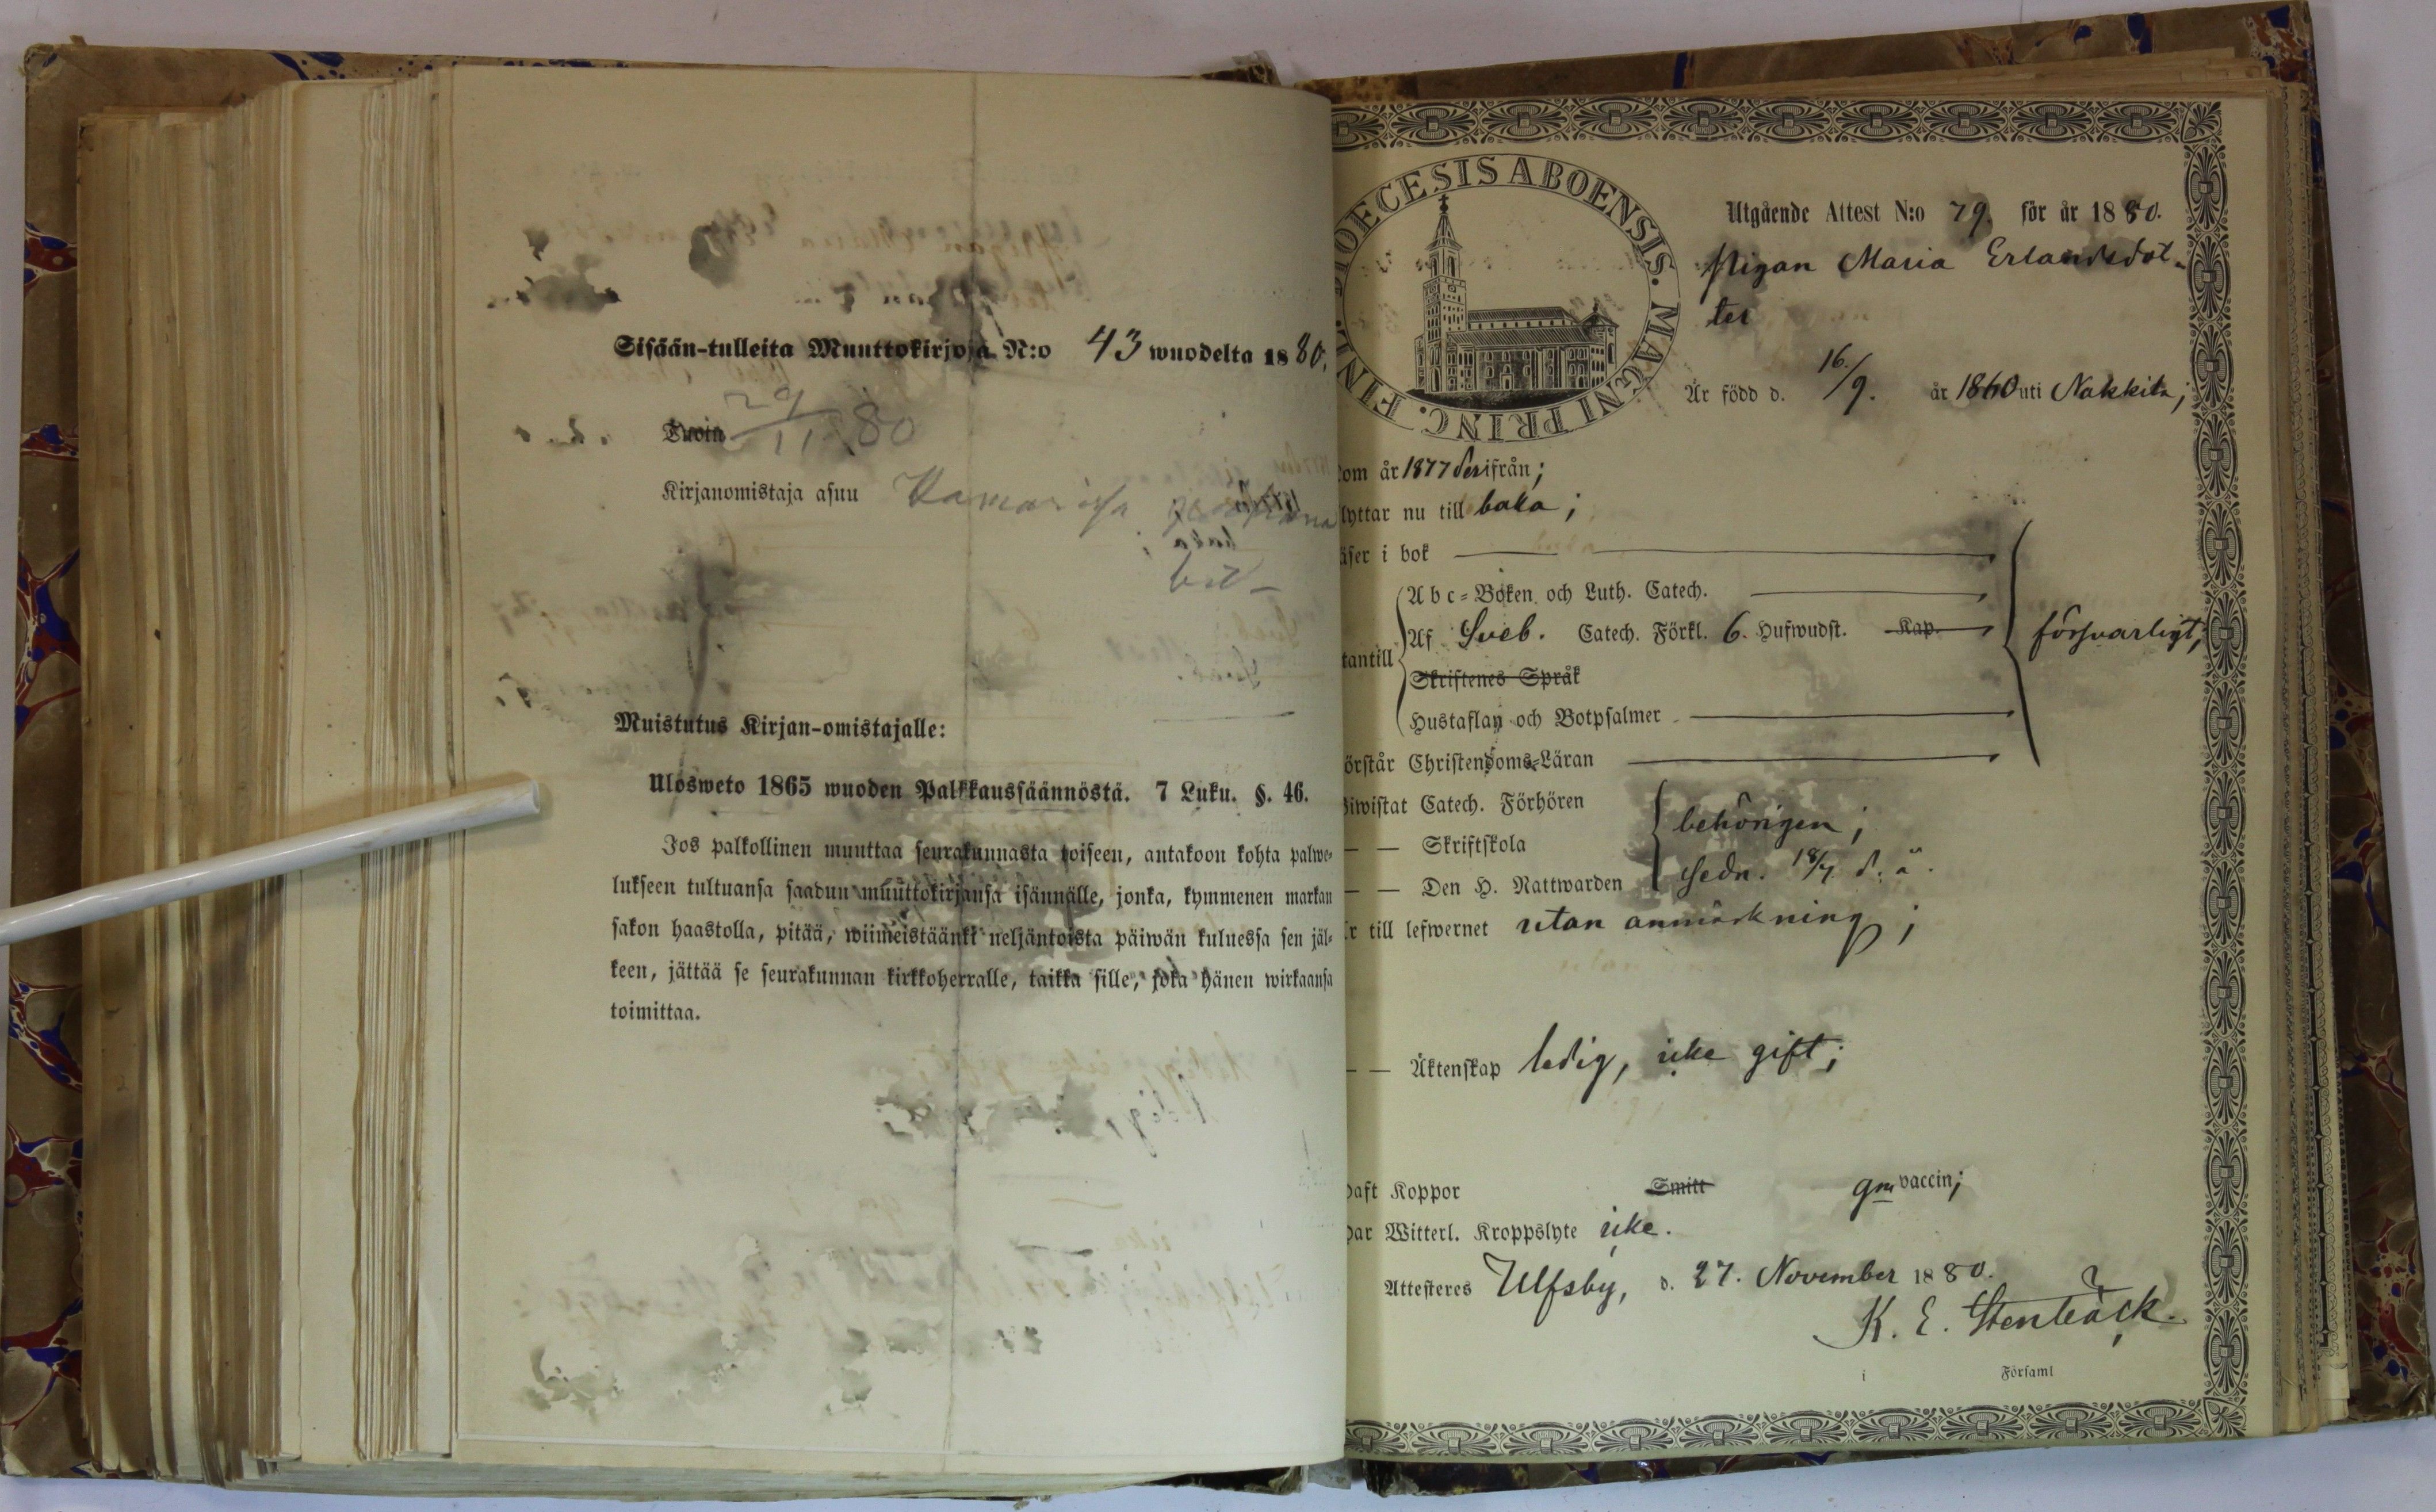 Sisään-tulleita Muuttokirjoja N:o 43 wuodelta 1880.
Tuoin 29/11 80
Kirjanomistaja asuu
Muistutus Kirjan-omistajalle:
Ulosweto 1865 wuoden Palkkaussäännöstä. 7 Luku. §. 46.
Jos palkollinen muuttaa seurakunnasta toiseen, antakoon kohta palwe-
lukseen tultuansa saadun muuttokirjansa isännälle, jonka, kymmenen markan
sakon haastolla, pitää, wiimeistäänki neljäntoista päiwän kuluessa sen jäl-
keen, jättää se seurakunnan kirkkoherralle, taikka sille, joka hänen wirkaansa
toimittaa.
DIOECESIS ABOENSIS. MAGNI PRINC. FINL.
Utgående Attest N:o 79. för år 1880.
Pigan Maria Erlandsdot-
ter
Är född d. 16/9. år 1860 uti Nakkila;
kom år 1877 derifrån;
lyttar nu till baka;
äser i bok
Abc-Boken och Luth. Catech.
tantill Af Sveb. Catech. Förkl. 6. Hufwudst. Kap. försvarligt;
Skriftenes Språk
Hustaflan och Botpsalmer
örstår Christendoms-Läran
Biwistat Catech. Förhören
— — Skriftskola behörigen;
— — Den H. Nattwarden sedn. 18/7 d. å.
r till lefwernet utan anmärkning;
— — Äktenskap ledig, icke gift;
haft Koppor Smitt gm vaccin;
har Witterl. Kroppslyte icke.
Attesteres Ulfsby, d. 27. November 1880.
K. E. Stenbäck.
i Församl